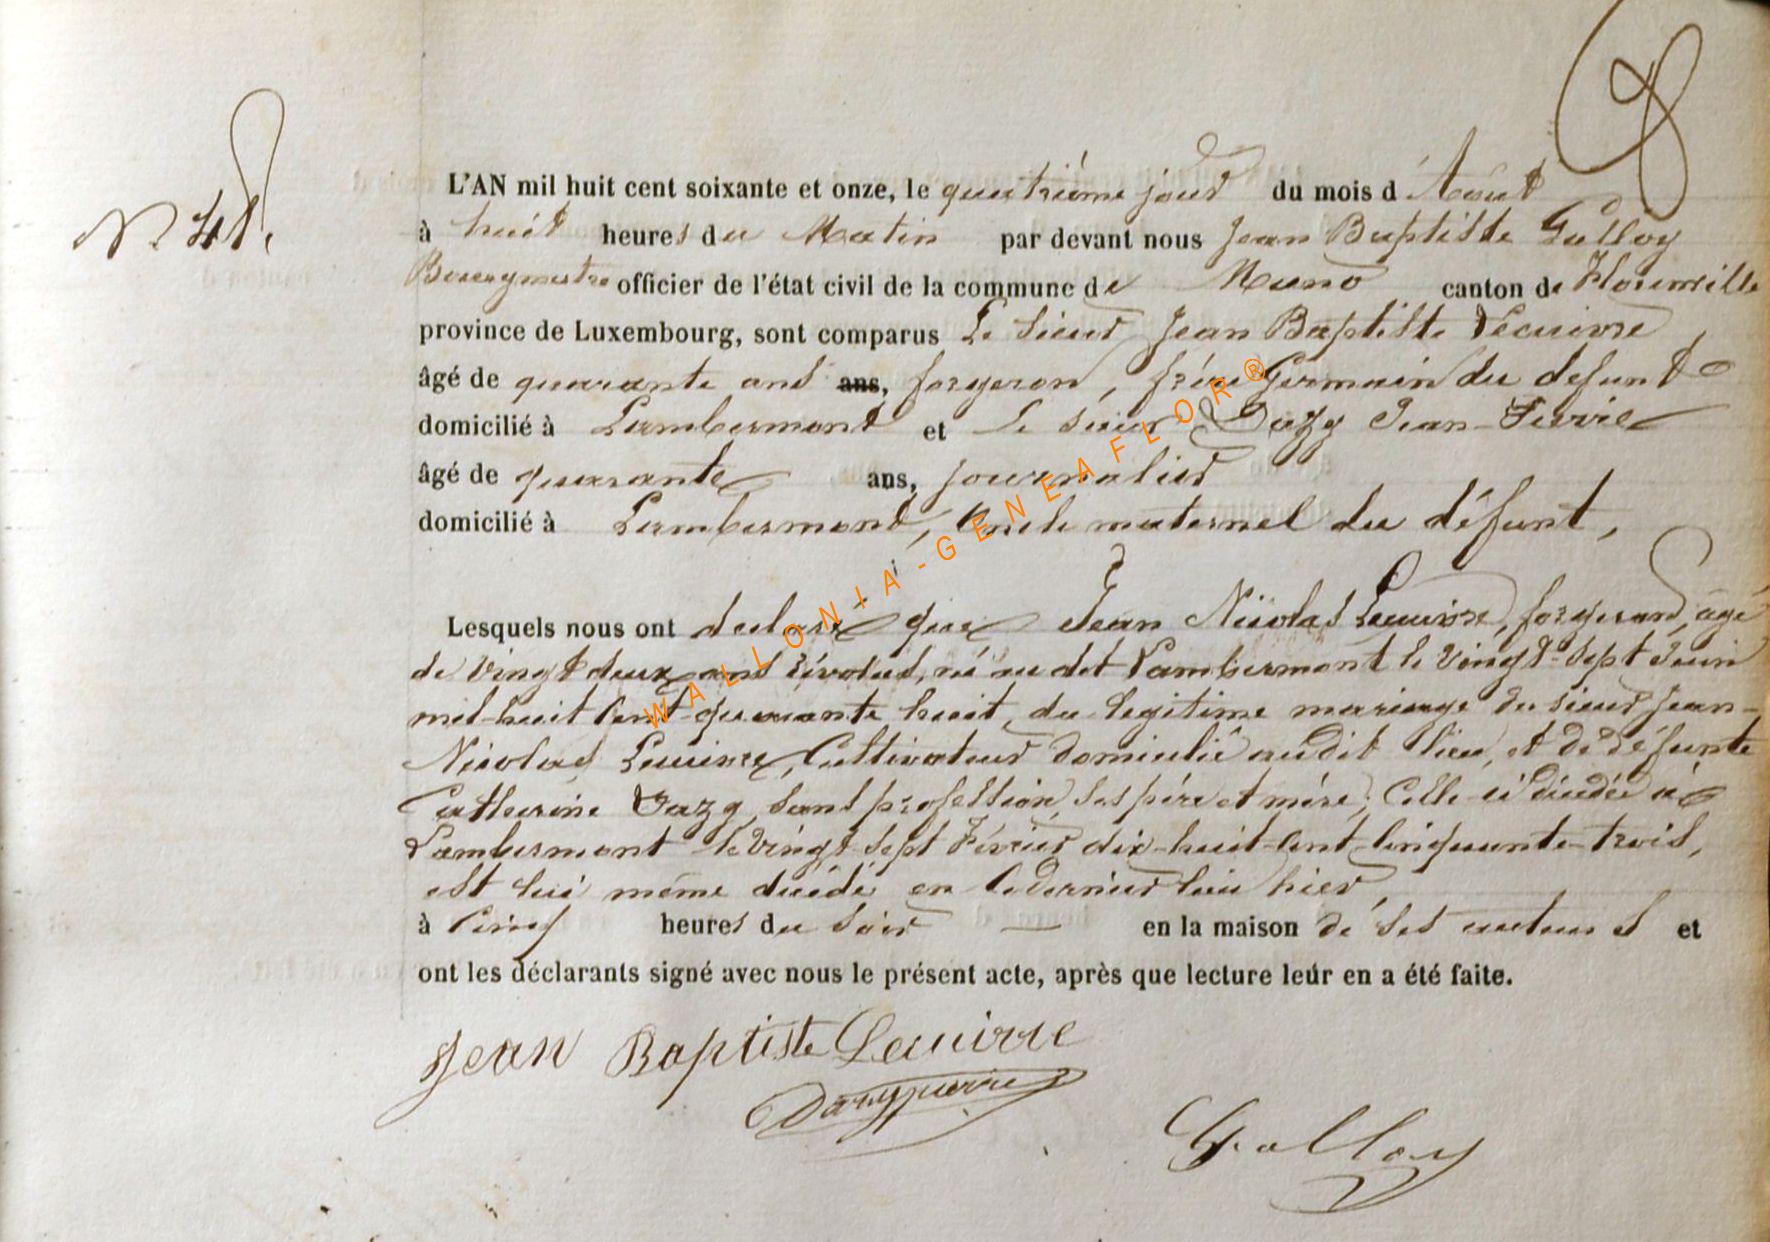 N° 48.
L'AN mil huit cent soixante et onze, le quatrième jour du mois d'Août
à huit heures du Matin par devant nous Jean Baptiste Golloy
Bourgmestre officier de l'état civil de la commune de Muno canton de Florenville
province de Luxembourg, sont comparus Le sieur Jean Baptiste Lecuivre
âgé de quarante ans ans, forgeron, frère Germain du defunt
domicilié à Lambermont et Le sieur Dazy Jean-Pierre
âgé de quarante ans, journalier
domicilié à Lambermont, Oncle maternel du défunt,
Lesquels nous ont declaré que Jean Nicolas Lecuivre, forgeron, âgé
de vingt deux ans révolus, né au dit Lambermont le vingt-sept Juin
mil-huit Cent-quarante huit, du legitime mariage du sieur Jean-
Nicolas Lecuivre, Cultivateur domicilié audit lieu, et de défunte
Catherine Dazy, sans profession, ses père et mère, Celle-ci décédée à
Lambermont le vingt sept Février dix-huit-Cent-Cinquante-trois,
est lui même décédé en ce dernier lieu hier,
à Cinq heures du soir en la maison de ses auteurs et
ont les déclarants signé avec nous le présent acte, après que lecture leur en a été faite.
Jean Baptiste Lecuivre
Dazy pierre
Golloy
WALLONIA-GENEAFLOR®